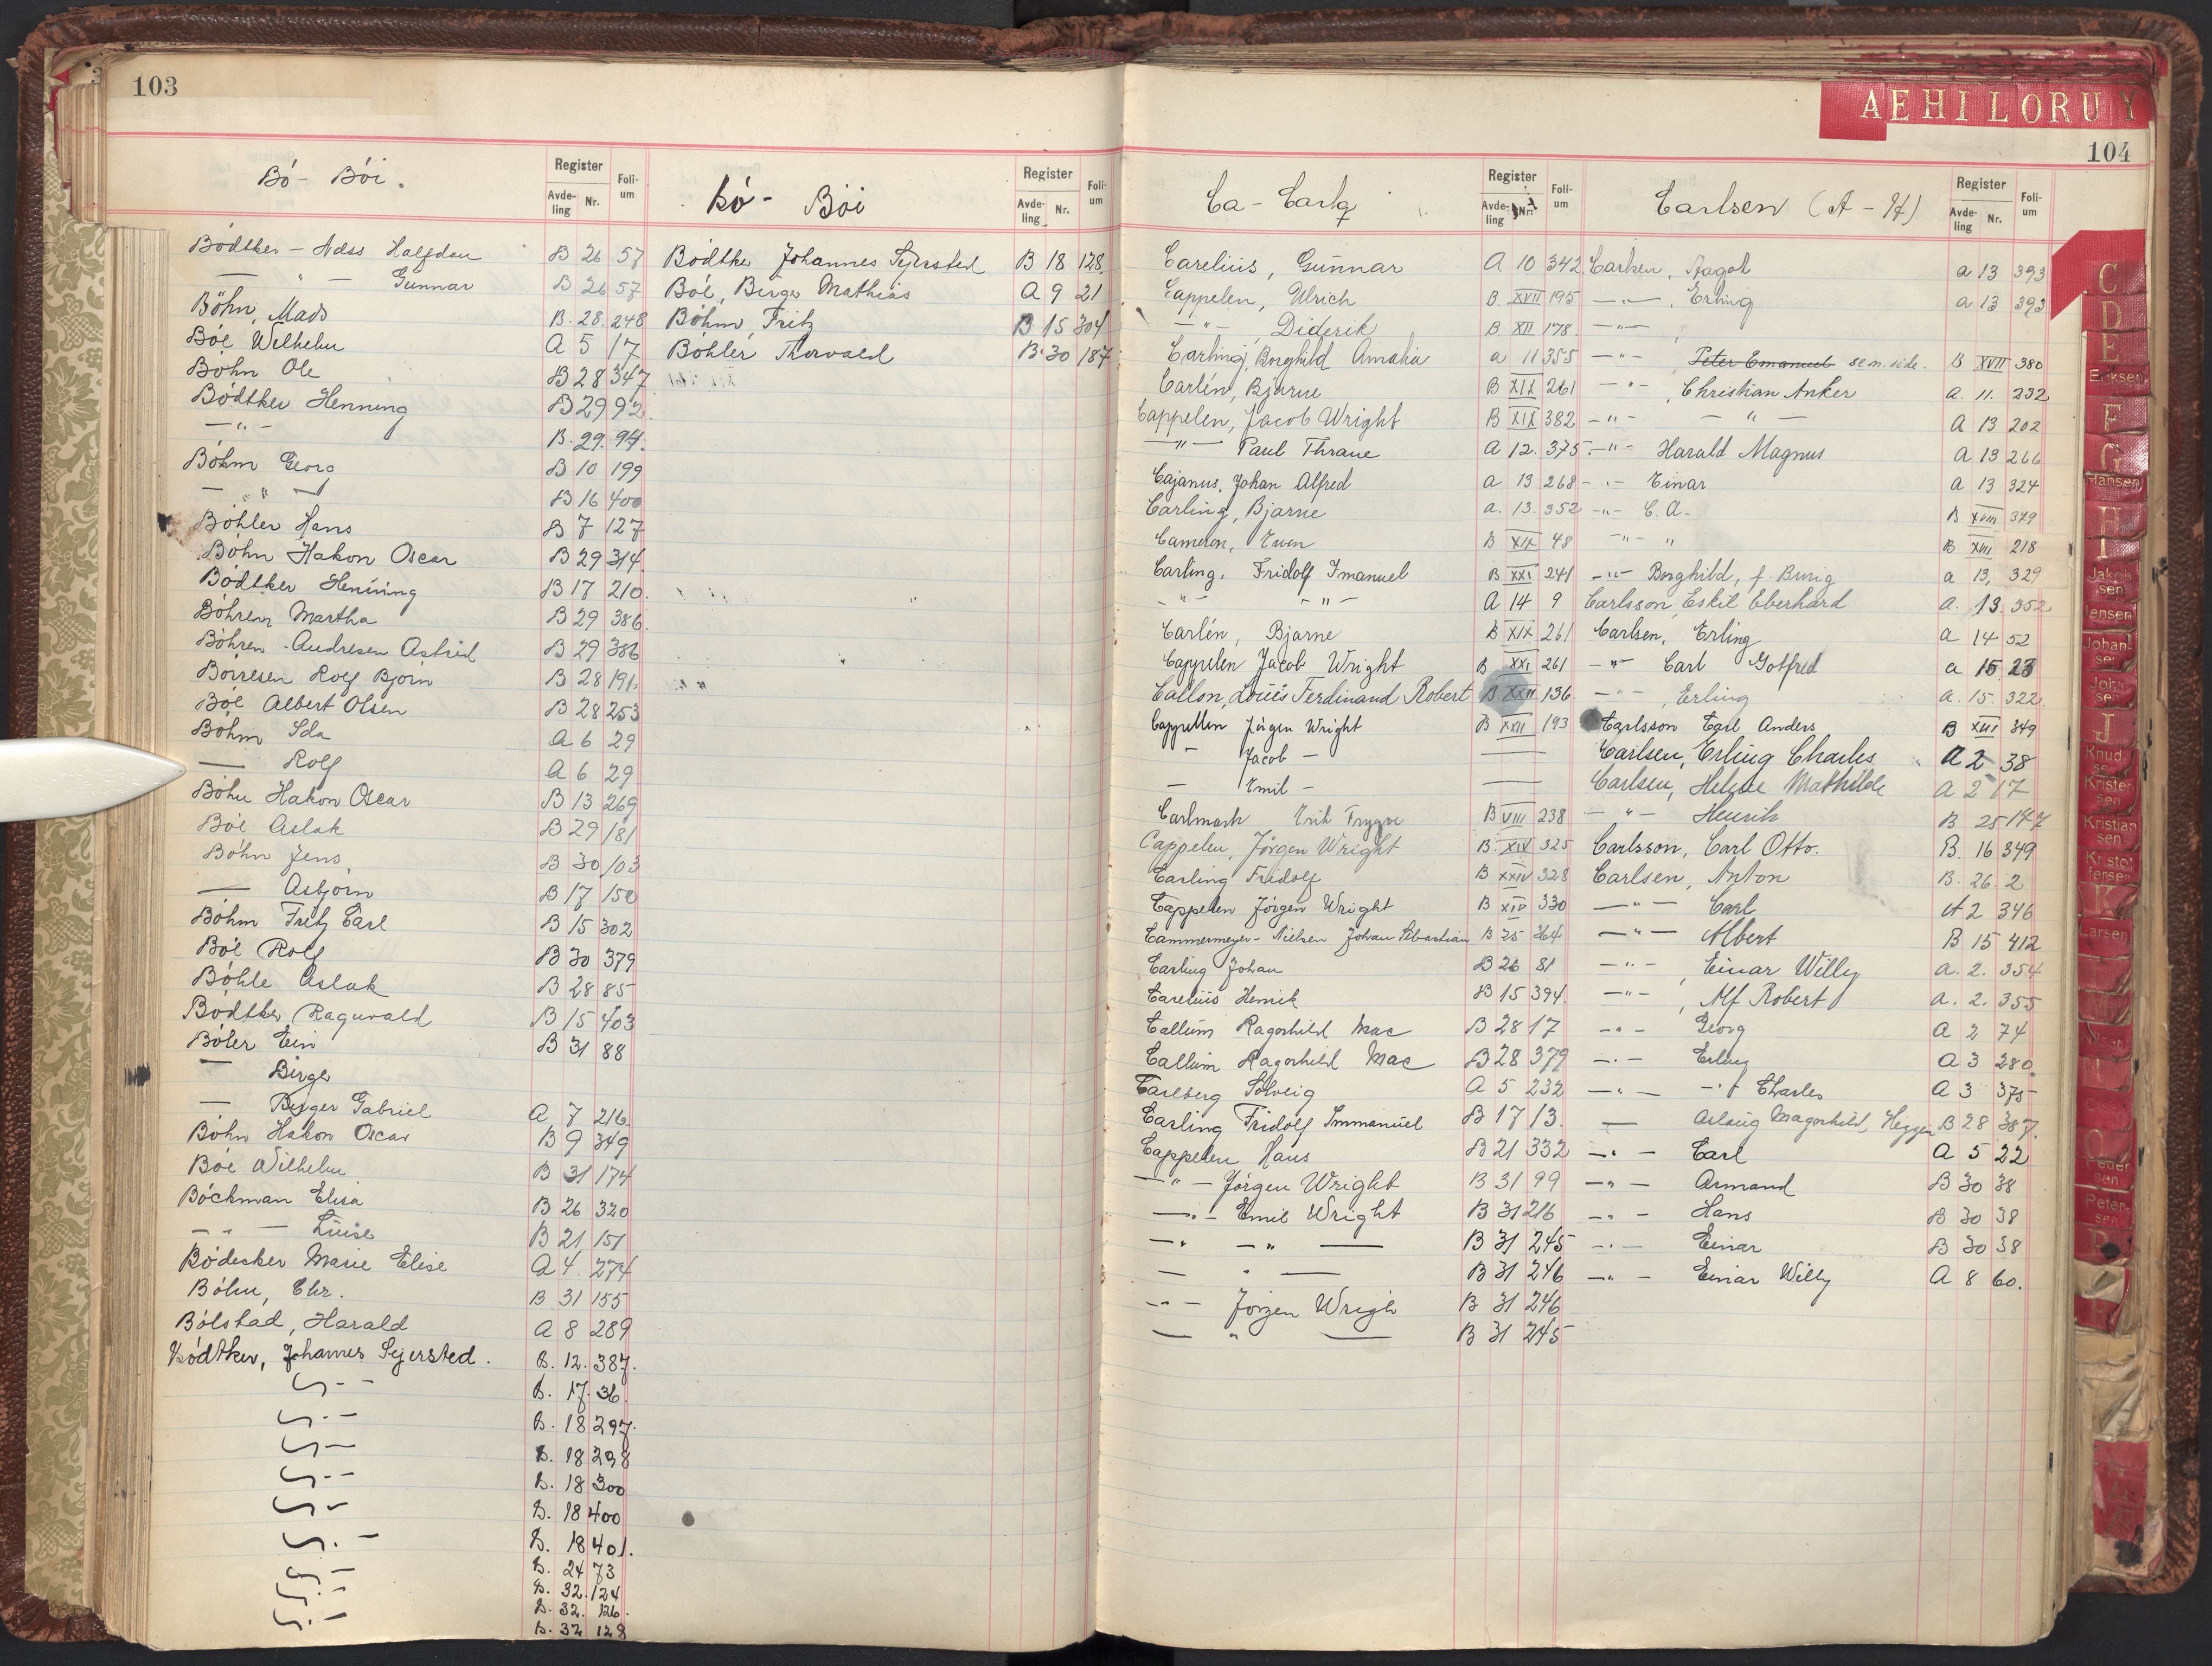 103
Bó - Bói.
Register
Avde-ling Nr.
Foli-um
Bódtker - Næss Halfdan B 26 57
— " — Gunnar B 26 57
Böhn, Mads B. 28. 248
Bóe Wilhelm A 5 17
Bóhn Ole B 28 347
Bódtker Henning B 29 92
— " — B. 29. 94.
Bóhm Georg B 10 199
— " — B 16 400
Bóhler Hans B 7 127
Bóhn Hakon Oscar B 29 314
Bódtker Henning B 17 210
Bóhren Martha B 29 386
Bóhren - Andresen Astrid B 29 386
Bóiresen Rolf Bjórn B 28 191
Bóe Albert Olsen B 28 253
Bóhm Ida A 6 29
— Rolf A 6 29
Bóhn Hakon Oscar B 13 269
Bóe Aslak B 29 181
Bóhn Jens B 30 103
— Asbjórn B 17 150
Bóhm Fritz Carl B 15 302
Bóe Rolf B 30 379
Bóhle Aslak B 28 85
Bódtker Ragnvald B 15 403
Bóler Ein B 31 88
— Birger
— Birger Gabriel A 7 216
Bóhn Hakon Oscar B 9 349
Bóe Wilhelm B 31 174
Bóckman Elisa B 26 320
— " — Luise B 21 151
Bódecker Marie Elise A 4 274
Bóhn, Chr. B 31 155
Bólstad, Harald A 8 289
Bódtker, Johannes Sejersted. B. 12. 387.
— " — B. 17. 36.
— " — B. 18 297.
— " — B. 18 298
— " — B. 18 300
— " — B. 18 400
— " — B. 18 401.
— " — B. 24 73
— " — B. 32. 124
— " — B. 32. 126.
B. 32 128
Bó - Bói
Register
Avde-ling Nr.
Foli-um
Bódtker Johannes Sejersted B 18 128.
Bóe, Birger Mathias A 9 21
Bóhm, Fritz B 15 304
Bóhler Thorvald B. 30 187
A E H I L O R U Y
104
Ca - Carlq
Register
Avde-ling Nr.
Foli-um
Carelius, Gunnar A 10 342
Cappelen, Ulrich B. XVII 195
— " — Diderik B XII 178
Carling, Borghild Amalia a 11 355
Carlén, Bjarne B XIX 261
Cappelen, Jacob Wright B XIX 382
— " — Paul Thrane A 12. 375.
Cajanus, Johan Alfred a 13 268
Carling, Bjarne a. 13. 352
Cameron, Ewen B XIX 48
Carling, Fridolf Imanuel B XXI 241
— " — — " — A 14 9
Carlén, Bjarne B XIX 261
Cappelen Jacob Wright B XXI 261
Callon, Louis Ferdinand Robert B XXII 136
Cappellen Jörgen Wright B XXII 193
— Jacob — —
— Emil — —
Carlmark Erik Trygve B VIII 238
Cappelen, Jörgen Wright B. XIV 325
Carling Fridolf B XXIV 328
Cappelen Jörgen Wright B XIV 330
Cammermeyer - Nielsen Johan Sebastian B 25 264
Carling Johan B 26 81
Carelius Henrik B 15 394
Callum Ragnhild Mac B 28 17
Callum Ragnhild Mac B 28 379
Carlberg Solveig A 5 232
Carling Fridolf Immanuel B 17 13
Cappelen Hans B 21 332
— " — Jórgen Wright B 31 99
— " — Emil Wright B 31 216
— " — " — B 31 245
— " — B 31 246
— " — Jórgen Wrigh B 31 246
— " — B 31 245
Carlsen (A - H)
Register
Avde-ling Nr.
Foli-um
Carlsen, Aagot a 13 393
— " —, Erling a 13 393
— " —,
— " —, Peter Emanuel se n. side. B XVII 380
— " —, Christian Anker a. 11. 232
— " — — " — A 13 202
— " — Harald Magnus A 13 266
— " — Einar a 13 324
— " — C. A. B XVIII 379
— " — " B XVIII 218
— " — Borghild, f. Burig a 13, 329
Carlsson Eskil Eberhard a. 13. 352
Carlsen, Erling a 14 52
— " — Carl Gotfred a 15 23
— " —, Erling a. 15. 322.
Carlsson Carl Anders B XVI 349
Carlsen, Erling Charles A 2 38
Carlsen, Helene Mathilde A 2 17
— " — Henrik B 25 147
Carlsson, Carl Otto. B. 16 349
Carlsen, Anton B. 26. 2
— " — Carl A 2 346
— " — Albert B 15 412
— " —, Einar Willy a. 2. 354
— " —, Alf Robert a. 2. 355
— " — Georg A 2 74
— " — Erling A 3 280
— " — — " — Charles A 3 375
— Aslaug Magnhild, Heggen B 28 387.
— " — Carl A 5 22
— " — Armand B 30 38
— " — Hans B 30 38
— " — Einar B 30 38
— " — Einar Willy A 8 60.
C
D
E
Eriksen
F
G
Hansen
H
I
Jakobsen
Jensen
Johansen
J
Knudsen
Kristensen
Kristiansen
Kristoffersen
K
Larsen
L
Pedersen
Petersen